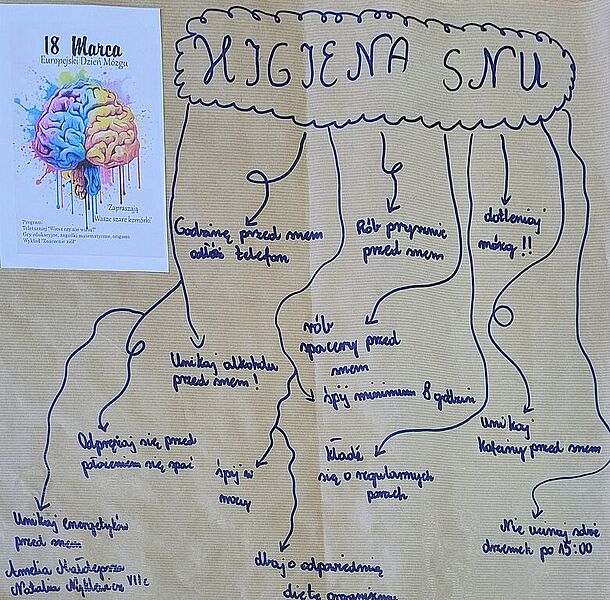 18 Marca
Europejski Dzień Mózgu
Zapraszają
"Wasze szare komórki"
Program:
Teleturniej "Wiesz czy nie wiesz?"
Gry edukacyjne, zagadki matematyczne, origami
Wykład "Znaczenie ziół"
HIGIENA SNU
Godzinę przed snem
odłóż telefon
Rób prysznic
przed snem
dotleniaj
mózg !!
Unikaj alkoholu
przed snem !
rób
spacery przed
snem
śpij minimum 8 godzin
Unikaj
kofeiny przed snem
Odprężaj się przed
położeniem się spać
śpij w
nocy
kładź
się o regularnych
porach
Unikaj energetyków
przed snem
Nie ucinaj sobie
drzemek po 15:00
dbaj o odpowiednią
dietę organizmu
Amelia
Natalia VII c